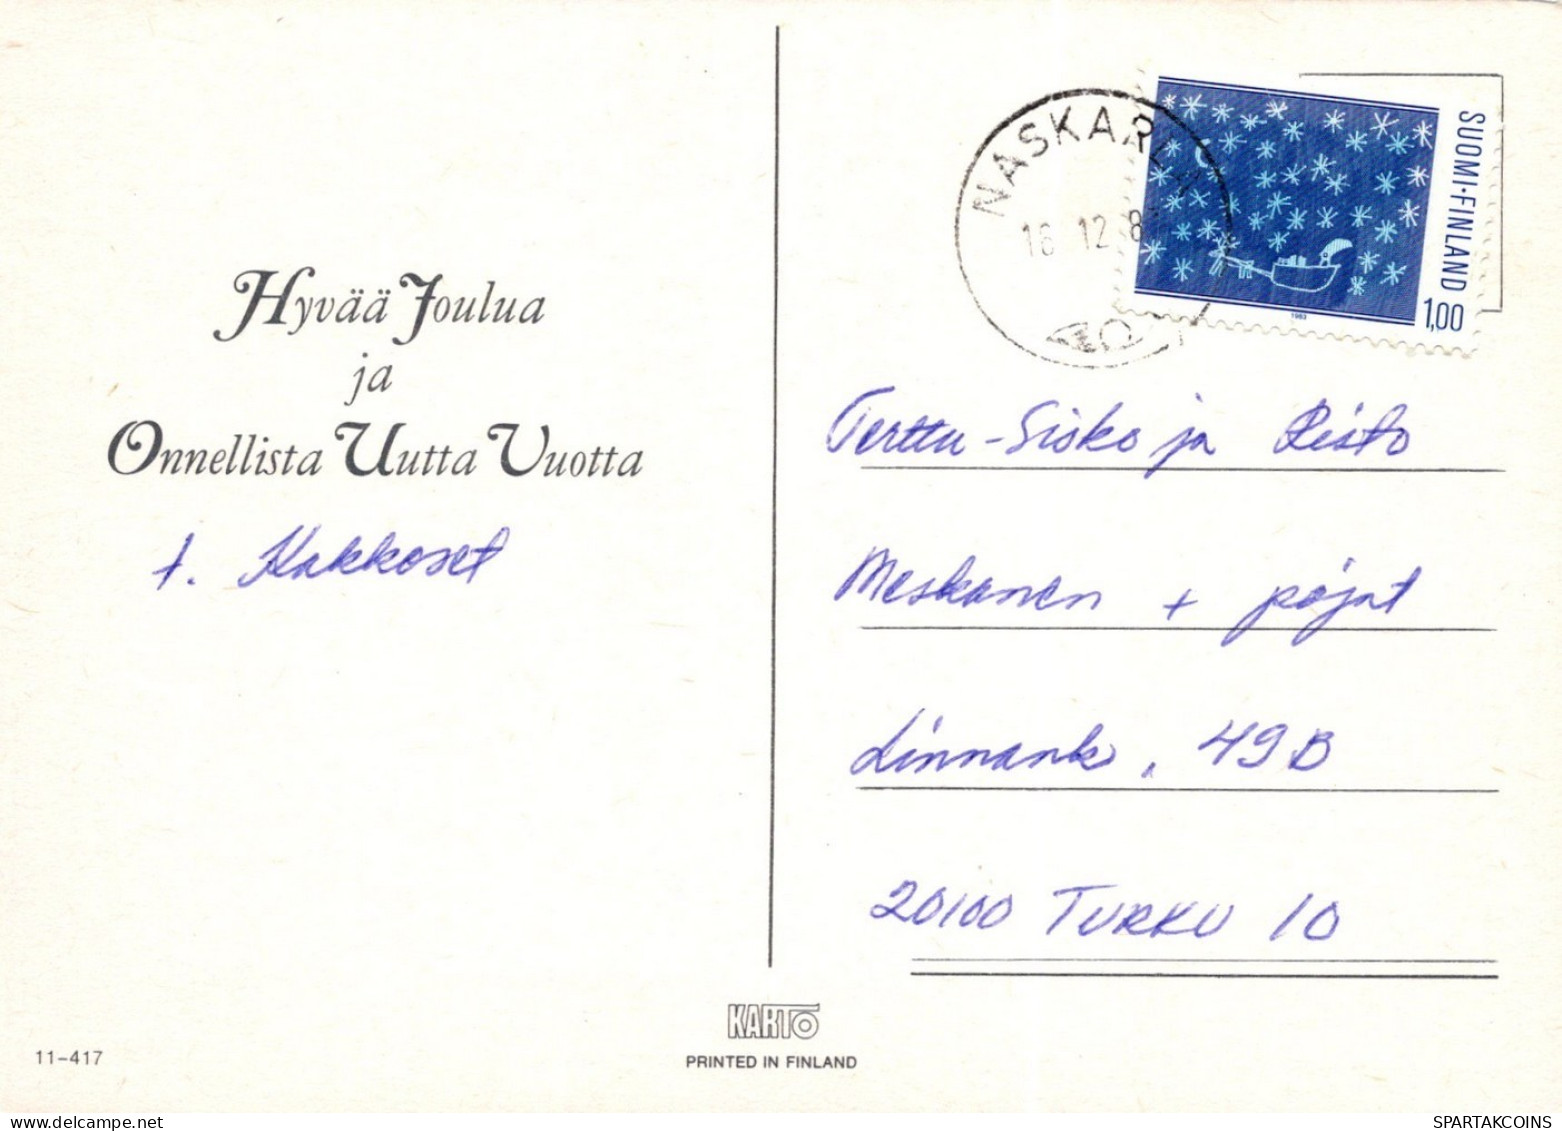 Hyvää Joulua
ja
Onnellista Uutta Vuotta
t. Kakkoset
NASKARLA
12 8
SUOMI·FINLAND
1,00
1983
Terttu-Sisko ja Risto
Meskanen + pojat
Linnank. 49 B
20100 TURKU 10
KARTO
PRINTED IN FINLAND
11-417
SPARTAKCOINS